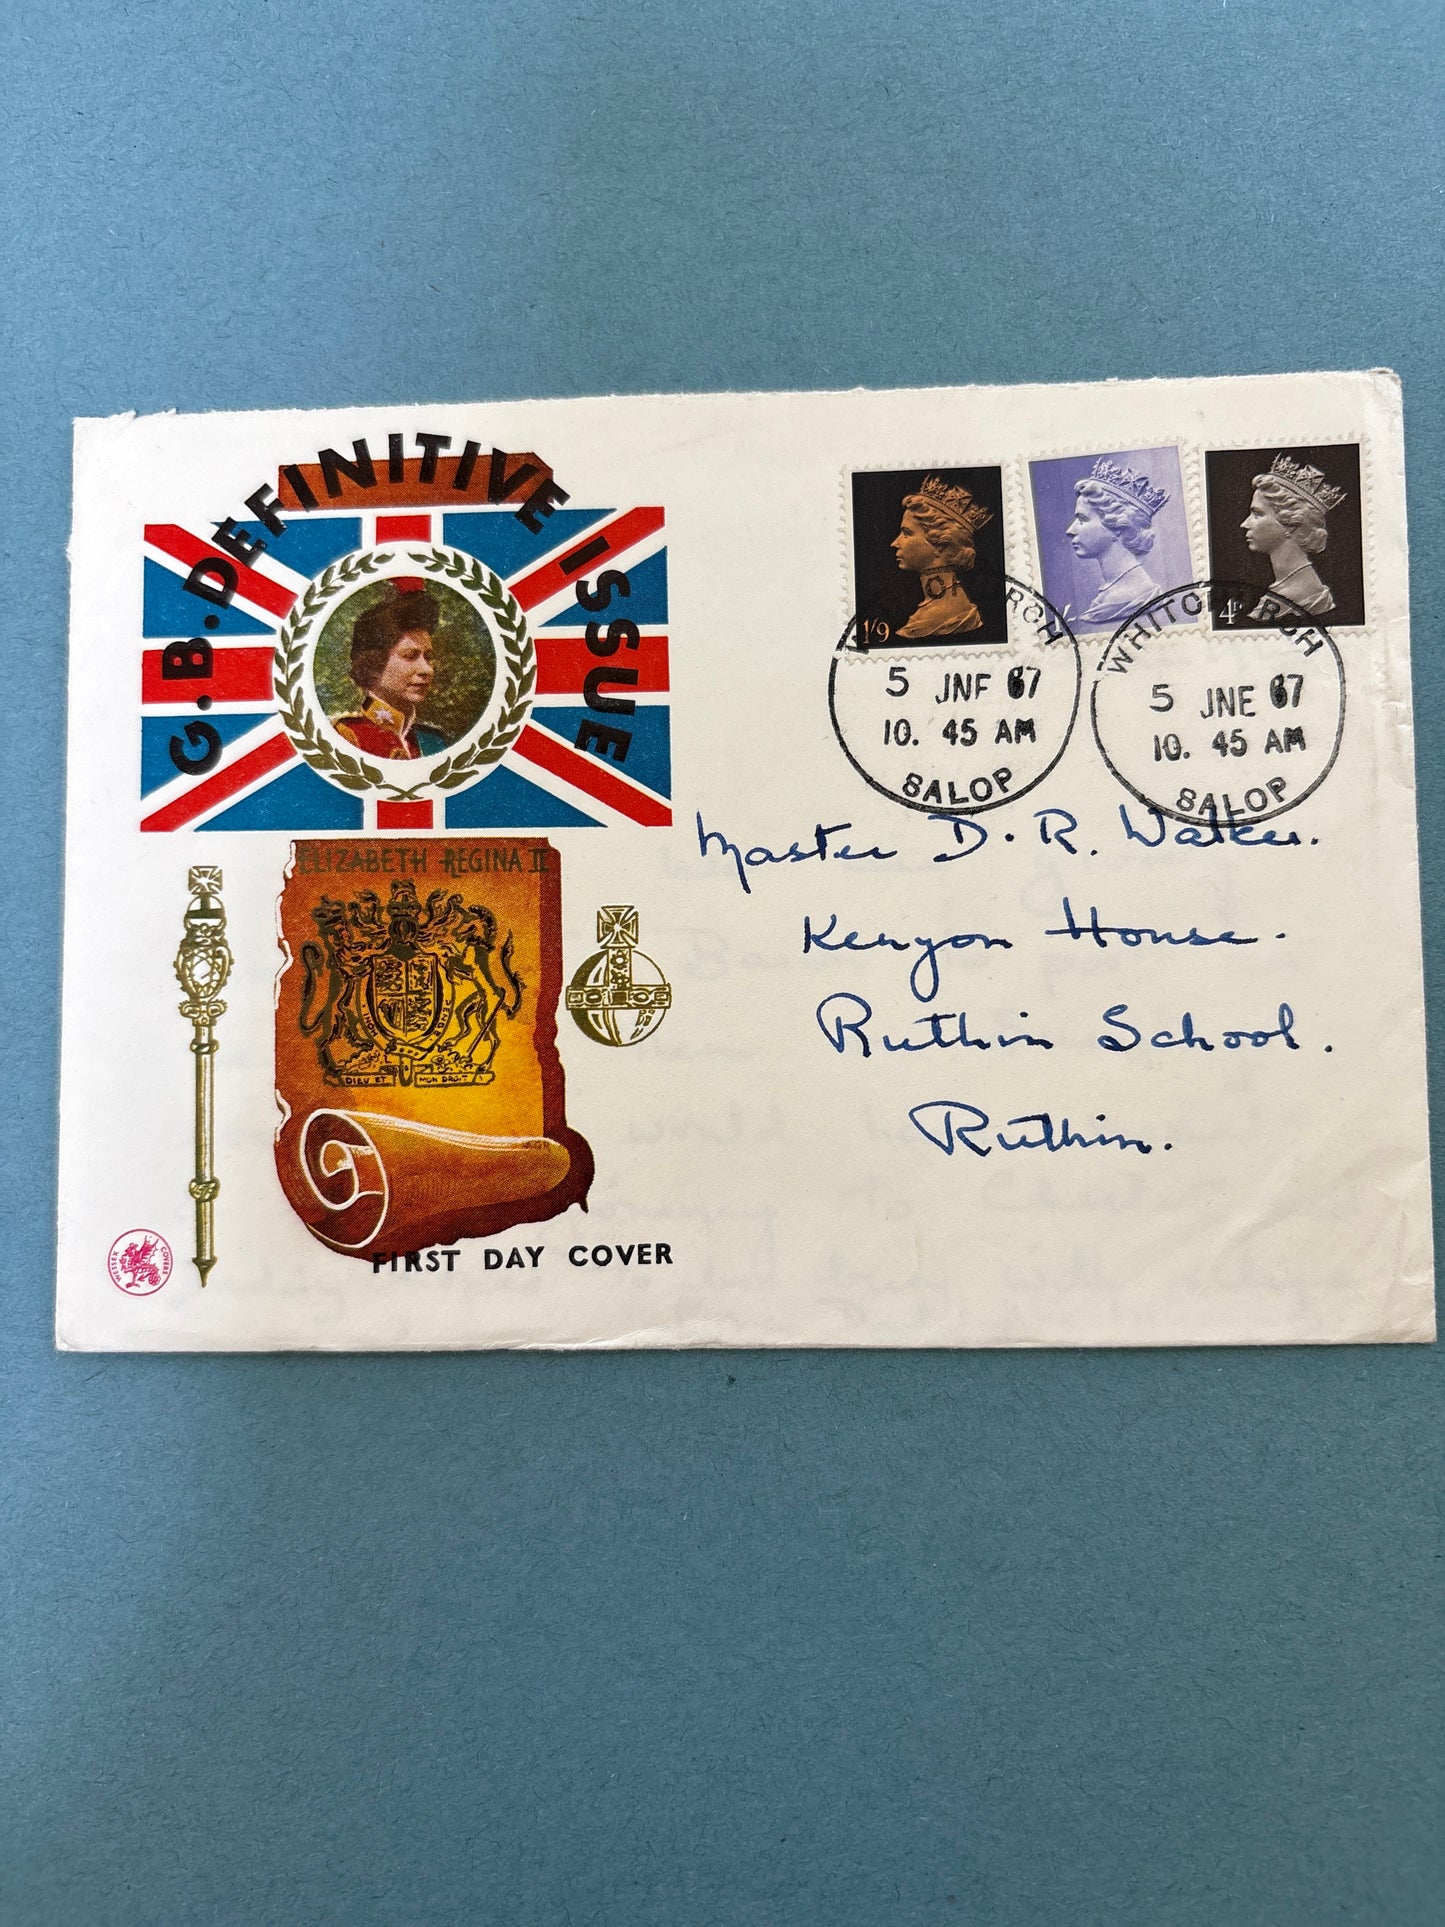 G.B. DEFINITIVE ISSUE
ELIZABETH REGINA II
DIEU ET MON DROIT
FIRST DAY COVER
WESSEX COVERS
1/9
4D
WHITCHURCH
5 JNE 67
10. 45 AM
SALOP
WHITCHURCH
5 JNE 67
10. 45 AM
SALOP
Master D. R. Walker.
Kenyon House.
Ruthin School.
Ruthin.